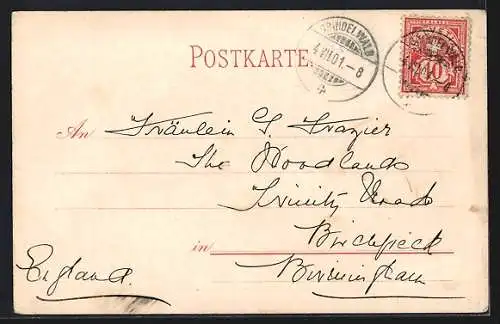 POSTKARTE
GRINDELWALD
4.VII.01.-8
10
An Fräulein S. Frazier
The Woodlands
Trinity Road
in Birchfield
England. Birmingham